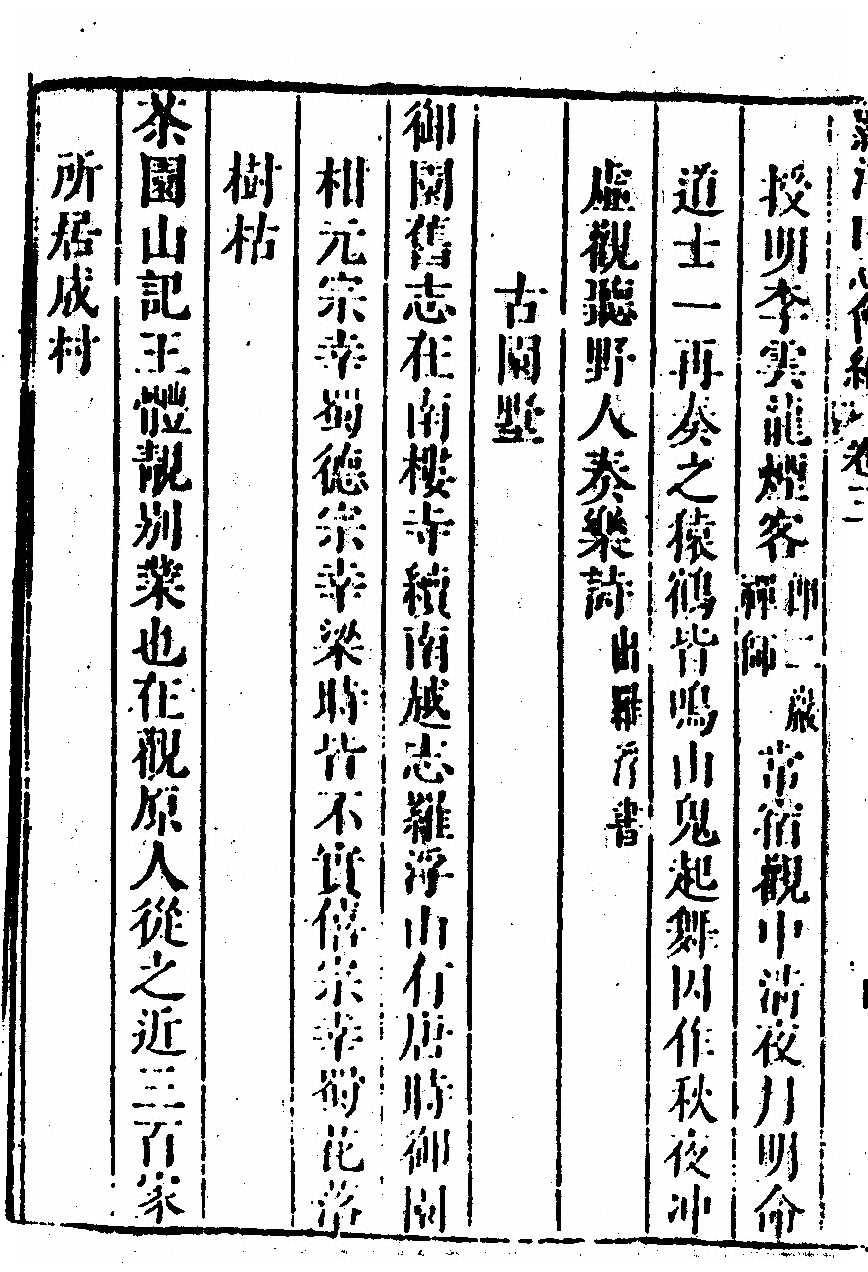 授明李雲龍煙客即二嚴禪師常宿觀中清夜月明命
道士一再奏之猿鶴皆鳴山鬼起舞因作秋夜冲
虛觀聽野人奏樂詩出羅浮書
古園墅
御園舊志在南樓寺續南越志羅浮山有唐時御園
柑元宗幸蜀德宗幸梁時皆不實僖宗幸蜀花落
樹枯
茶園山記王體靚別業也在觀原人從之近三百家
所居成村